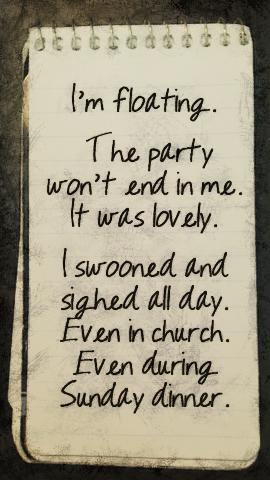 I'm floating.
The party
won't end in me.
It was lovely.
I swooned and
sighed all day.
Even in church.
Even during
Sunday dinner.